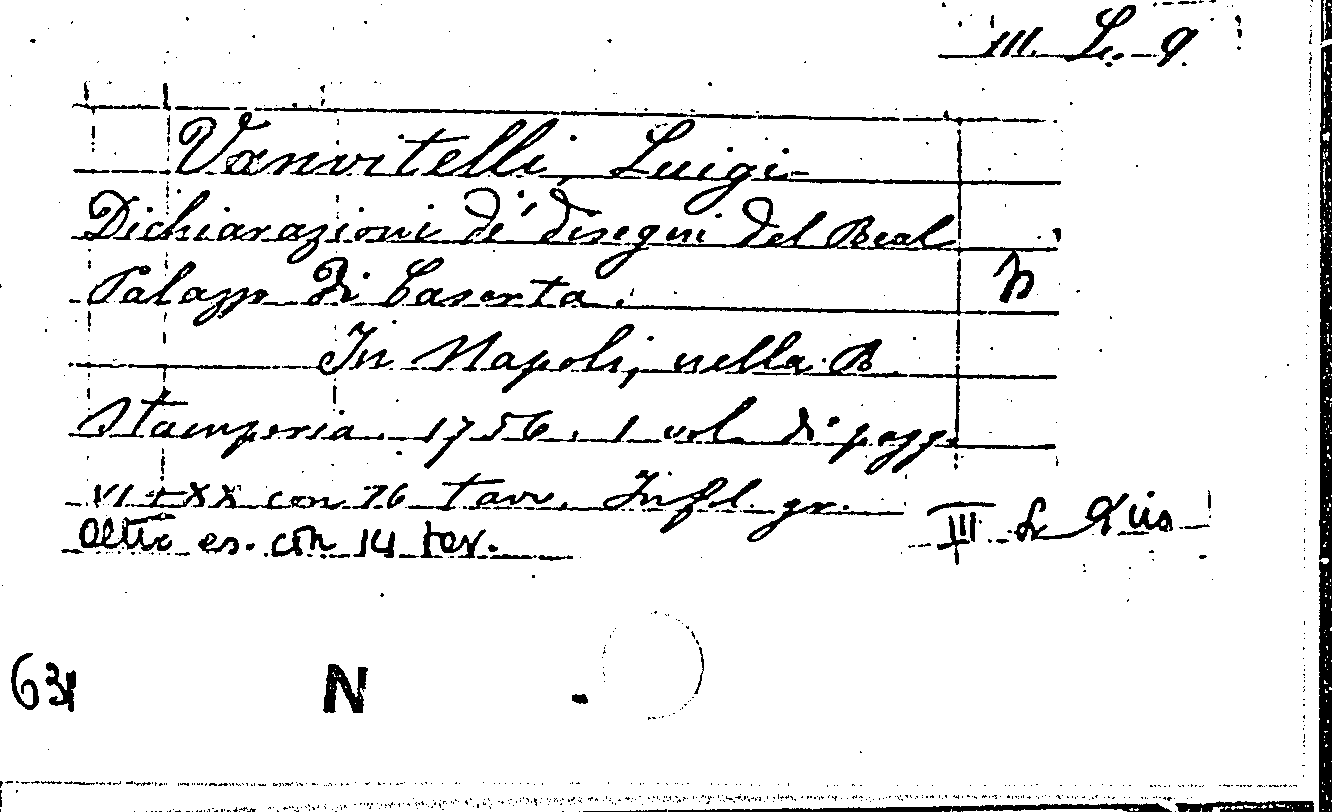 III. L. 9
Vanvitelli, Luigi
Dichiarazioni de' disegni del Real
Palazzo di Caserta.
In Napoli, nella R.
Stamperia. 1756. 1 vol. di pagg.
VI + XX con 76 tav. In fol. gr.
altro es. con 14 tav.
III L
631 N